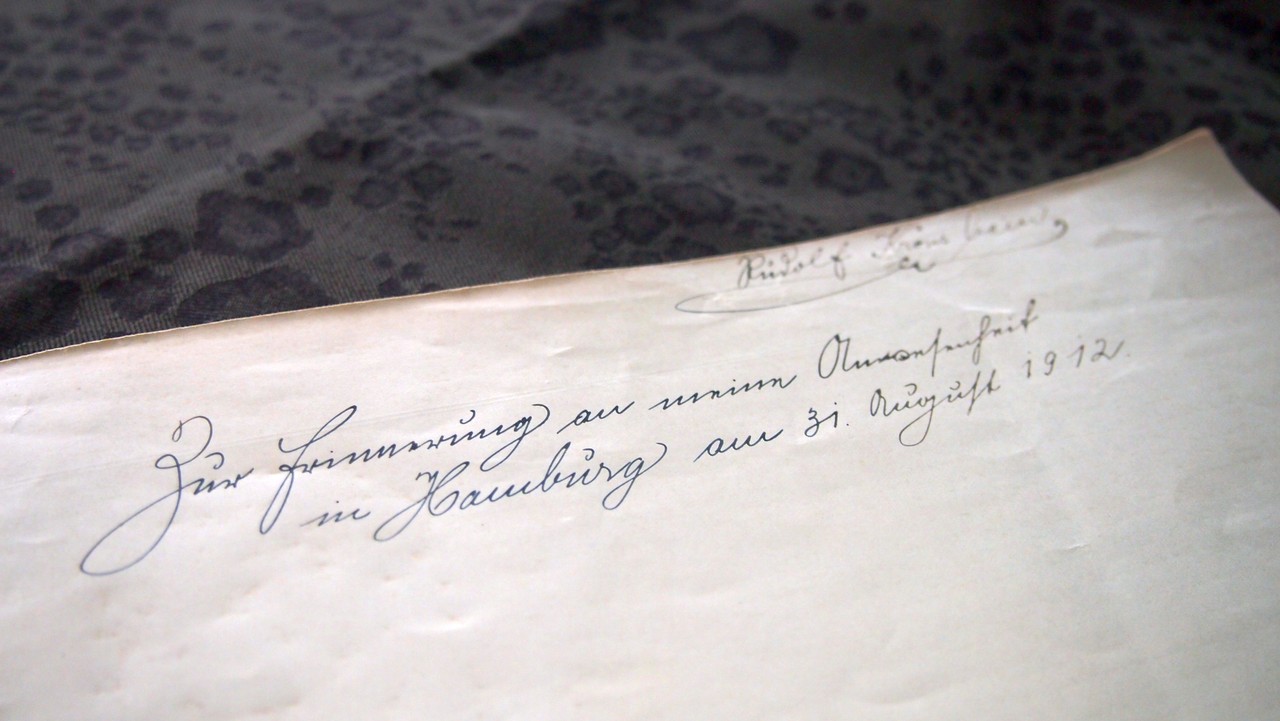 Rudolf
Zur Erinnerung an meine Anwesenheit
in Hamburg am 31. August 1912.